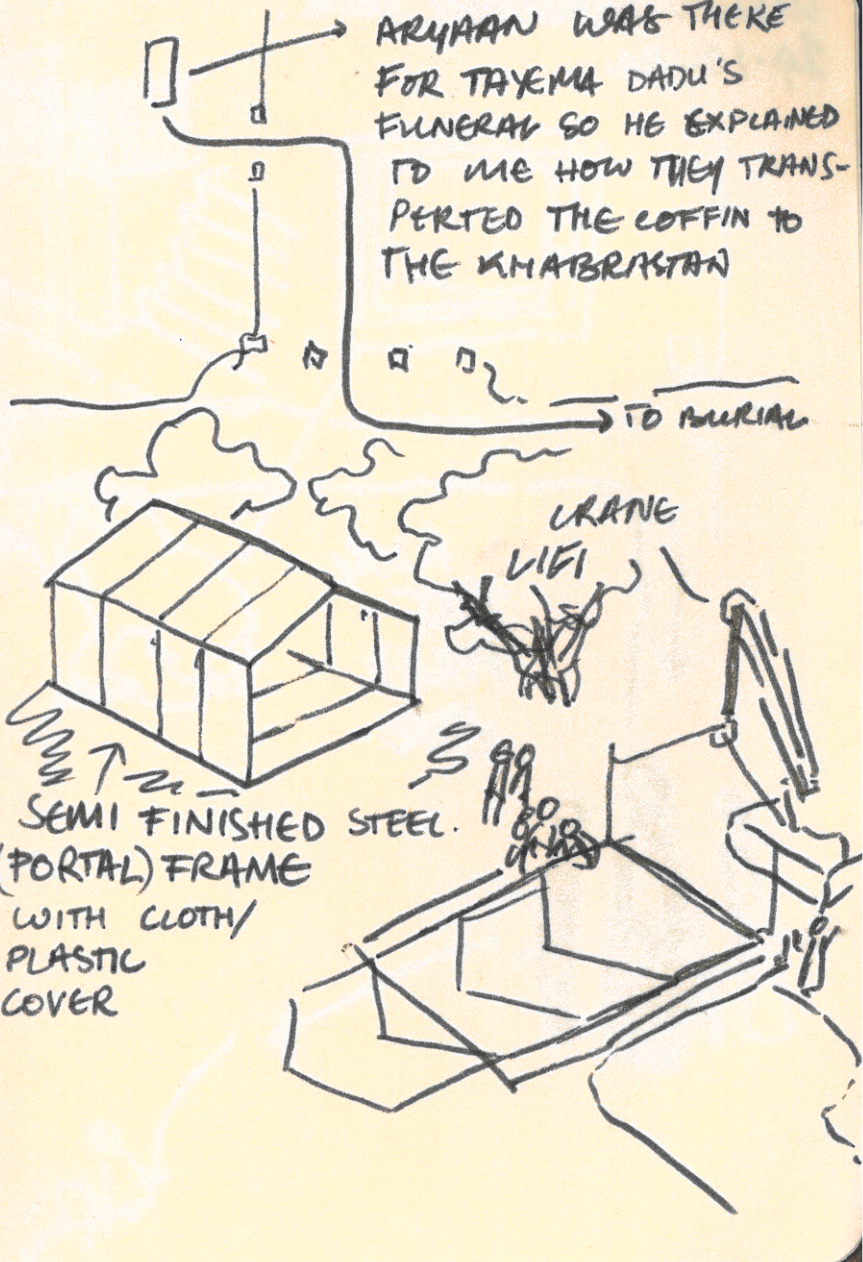 ARYAAN WAS THERE
FOR TAYEMA DADU'S
FUNERAL SO HE EXPLAINED
TO ME HOW THEY TRANS-
PERTED THE COFFIN TO
THE KHABRASTAN
TO BURIAL
CRANE
LIFT
SEMI FINISHED STEEL.
(PORTAL) FRAME
WITH CLOTH/
PLASTIC
COVER